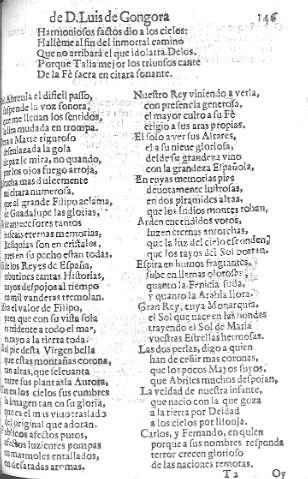 de D. Luis de Gongora 146
Harmoniosos factos dio a los cielos:
Hallème al fin del inmortal camino
Que no arribarà el que idolatra Delos.
Porque Talia mejor los triunfos cante
De la Fè sacra en citara sonante.
el dificil passo,
la voz sonora,
que me lleuan los sentidos,
mudada en trompa.
a Marte riguroso
la gola
de paz le mira, no quando,
por los ojos fuego arroja,
mas dulcemente
citara numerosa,
que al grande Filipo aclama,
de Guadalupe las glorias,
antecessores tantos
eternas memorias,
Reliquias son en cristales,
pues en su pecho estan todas.
Los Reyes de España,
canticas Historias,
cuyos despojos al tiempo
en mil vanderas tremolan.
el valor de Filipo,
pues que con su vista sola
tridente a todo el mar,
rayo a la tierra toda.
desta Virgen bella
que estas montañas corona,
tan altas, que seluanta
entre sus plantas la Aurora,
en los cielos sus cumbres
la imagen tan en su gloria,
que es el mismo traslado
del original que adoran.
afectos pusos,
luzientes pompas
en marmoles entallados,
en desatadas aromas.
Nuestro Rey viniendo a verla,
con presencia generosa,
el mayor culto a su Fè
erigio a sus aras propias.
El solo a ver sus Altares,
el a su nieue gloriosa,
desde su grandeza vino
con la grandeza Española,
En cuyas memorias pïas
deuotamente lustrosas,
en dos piramides altas,
que los Indios montes roban,
Arden encendidos votos,
luzen eternas antorchas,
que la luz del cielo esconden,
que los rayos del Sol borran.
Espira en humos fragantes,
sube en llamas olorosas,
quanto la Fenicia suda,
y quanto la Arabia llora.
Gran Rey, cuya Monarquia
el Sol que nace en las hondas
trayendo el Sol de Maria
vuestras Estrellas hermosas.
Las dos perlas, digo a quien
han de ceñir mas coronas,
que los pocos Mayos suyos,
que Abriles muchos despojan,
La veldad de nuestra infante,
que nacio con la que goza
a la tierra por Deidad
a los cielos por lisonja.
Carlos, y Fernando, en quien
porque a sus nombres responda
terror crecen glorioso
de las naciones remotas.
T 2 Oy